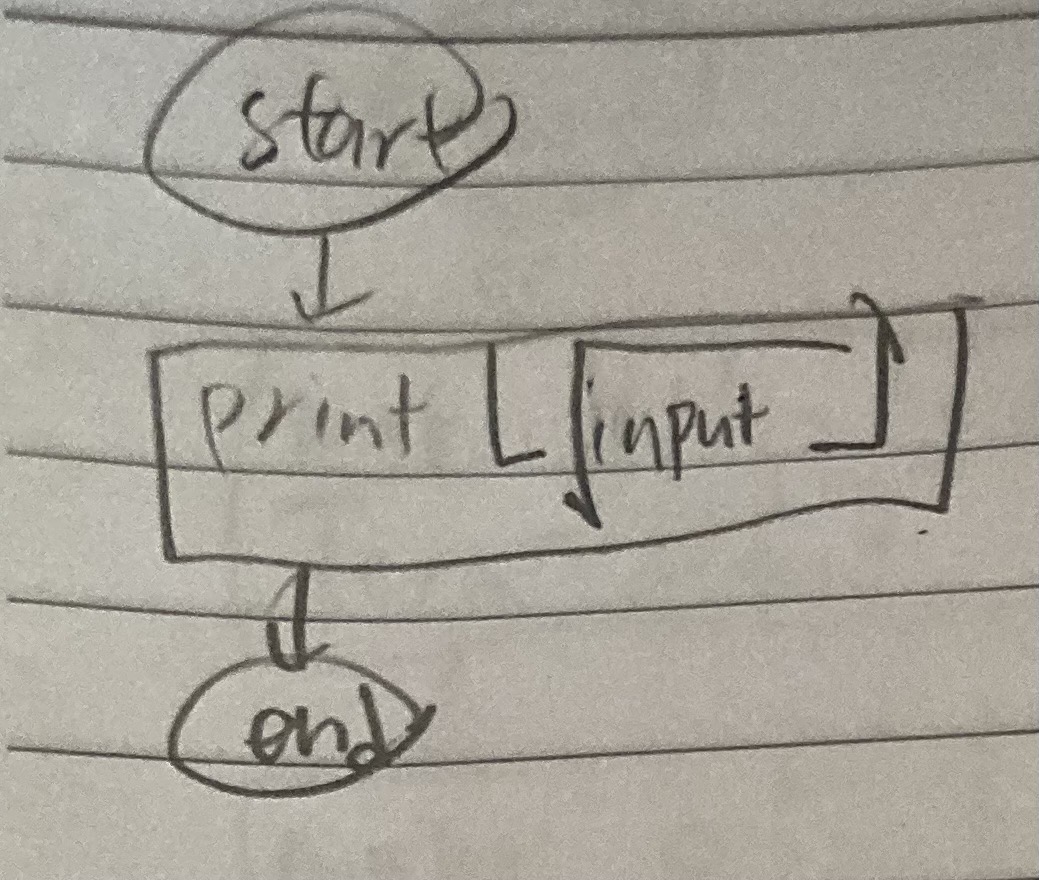 start
print [ input ]
end